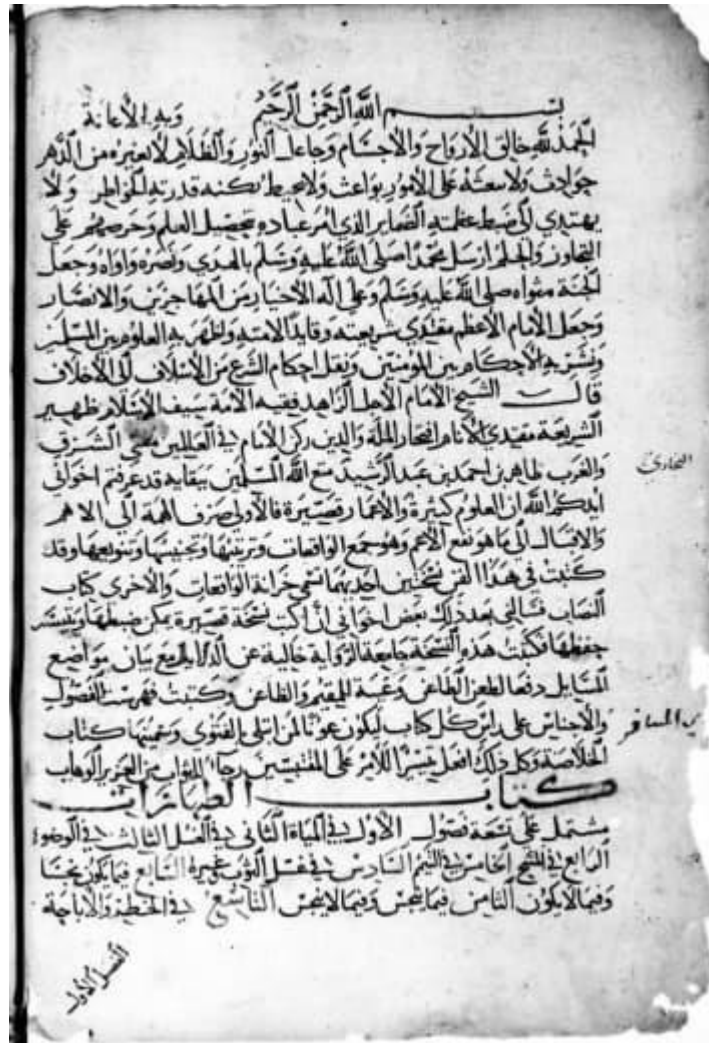 بسم الله الرحمن الرحيم وبه الإعانة
الحمد لله خالق الأرواح والأجسام وجاعل النور والظلام لا تعيره من الدهر
حوادث ولا تبعثه على الأمور بواعث ولا يحيط بكنه قدرته الخواطر ولا
يهتدي إلى ضبط عظمته الضماير الذي أمر عباده بتحصيل العلم وحرصهم على
التجاوز والحلم أرسل محمدا صلى الله عليه وسلم بالهدى ونصره واواه وجعل
الجنة مثواه صلى الله عليه وسلم وعلى آله الأخيار من المهاجرين والأنصار
وجعل الأمام الأعظم مقتدى شريعته وقايد الامته واظهر به العلوم بين المسلمين
ونشر به الأحكام بين المؤمنين ونقل أحكام الشرع من الأسلاف إلى الأخلاف
قال الشيخ الامام الأجل الزاهد فقيه الأمة سيف الإسلام ظهير
الشريعة مقتدى الأنام افتخار الملة والدين ركن الأمام في العالمين مفتي الشرق
والغرب طاهر بن احمد بن عبد الرشيد متع الله المسلمين ببقايه قد عرفتم اخواني
أيدكم الله ان العلوم كثيرة والأعمار قصيرة فالأولى صرف الهمة الى الاهم
والاقبال إلى ما هو نفع الأعم وهو جمع الواقعات وترتيبها وتجنيسها وتنويعها وقد
كتبت في هذا الفن نسختين احديهما تسمى خزانة الواقعات والأخرى كتاب
النصاب فسالني بعد ذلك بعض اخواني ان اكتب نسخة قصيرة يمكن ضبطها ويتيسر
حفظها فكتبت هذه النسخة جامعة الرواية خالية عن الدلايل مع بيان مواضع
المسايل دفعا لطعن الطاعن ورغبة للمقيم والظاعن وكتبت فهرست الفصول
والأجناس على رأس كل كتاب ليكون عونا لمن ابتلي بالفتوى وسميتها كتاب
الخلاصة وكل ذلك افعل تيسرا للأمر على المقتبسين رجاء للثواب من العزيز الوهاب
كتاب الطهارات
مشتمل على تسعة فصول الأول في المياه الثاني في الغسل الثالث في الوضوء
الرابع في المسح الخامس في التيمم السادس في غسل الثوب وغيره السابع فيما يكون نجسا
وفيما لا يكون الثامن فيما ينجس وفيما لا ينجس التاسع في الحظر والأباحة
الفصل الأول
البخاري
المسافر